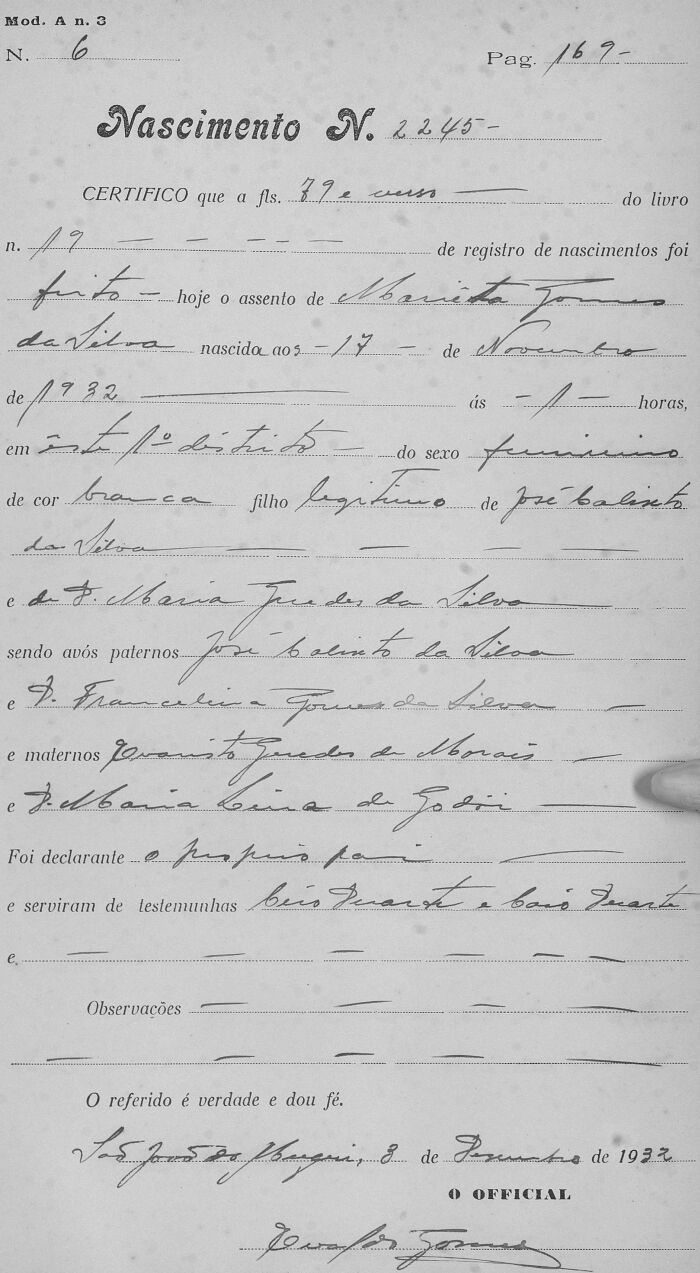 Mod. A n. 3
N. 6 Pag. 169-
Nascimento N. 2245-
CERTIFICO que a fls. 79 e verso do livro
n. 19 de registro de nascimentos foi
feito - hoje o assento de Mariêta Gomes
da Silva nascida aos - 17 - de Novembro
de 1932 ás - 1 - horas,
em êste 1º distrito - do sexo feminino
de cor branca filho legitimo de José Calixto
da Silva
e de D. Maria Guedes da Silva
sendo avós paternos José Calixto da Silva
e D. Francelina Gomes da Silva
e maternos Evaristo Guedes de Morais
e D. Maria de Godói
Foi declarante o proprio pai
e serviram de testemunhas Duarte e Caio Duarte
e
Observações
O referido é verdade e dou fé.
São João do, 3 de Dezembro de 1932
O OFFICIAL
Gomes